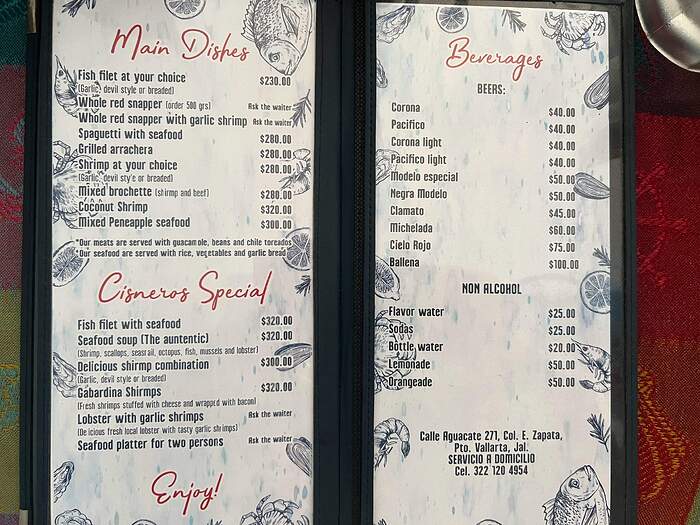 Main Dishes
Fish filet at your choice $230.00
(Garlic, devil style or breaded)
Whole red snapper (order 500 grs) Ask the waiter
Whole red snapper with garlic shrimp Ask the waiter
Spaguetti with seafood $280.00
Grilled arrachera $280.00
Shrimp at your choice $280.00
(Garlic, devil style or breaded)
Mixed brochette (shrimp and beef) $280.00
Coconut Shrimp $320.00
Mixed Peneapple seafood $300.00
*Our meats are served with guacamole, beans and chile toreados
*Our seafood are served with rice, vegetables and garlic bread
Cisneros Special
Fish filet with seafood $320.00
Seafood soup (The auntentic) $320.00
(Shrimp, scallops, seasnail, octopus, fish, mussels and lobster)
Delicious shirmp combination $300.00
(Garlic, devil style or breaded)
Gabardina Shirmps $320.00
(Fresh shrimps stuffed with cheese and wrapprd with bacon)
Lobster with garlic shrimps Ask the waiter
(Delicious fresh local lobster with tasty garlic shrimps)
Seafood platter for two persons Ask the waiter
Enjoy!
Beverages
BEERS:
Corona $40.00
Pacifico $40.00
Corona light $40.00
Pacifico light $40.00
Modelo especial $50.00
Negra Modelo $50.00
Clamato $45.00
Michelada $60.00
Cielo Rojo $75.00
Ballena $100.00
NON ALCOHOL
Flavor water $25.00
Sodas $25.00
Bottle water $20.00
Lemonade $50.00
Orangeade $50.00
Calle Aguacate 271, Col. E. Zapata,
Pto. Vallarta, Jal.
SERVICIO A DOMICILIO
Cel. 322 120 4954